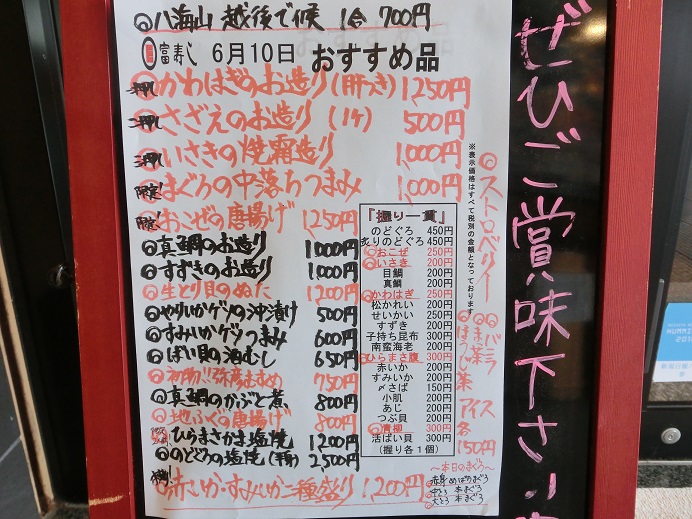 ◎八海山 越後で候 1合 700円
富寿し 6月10日 おすすめ品
かわはぎのお造り(肝つき) 1,250円
さざえのお造り(1ケ) 500円
いさきの焼霜造り 1,000円
限定! まぐろの中落ちつまみ 1,000円
限定! おこぜの唐揚げ 1250円
◎真鯛のお造り 1000円
◎すずきのお造り 1,000円
◎生とり貝のぬた 1200円
◎やりいかゲソの沖漬け 500円
◎すみいかゲソつまみ 600円
◎ばい貝の酒むし 650円
◎初物!!弥彦むすめ 750円
◎真鯛のかぶと煮 800円
◎地ふぐの唐揚げ 800円
◎ひらまさかま塩焼 1200円
◎のどぐろの塩焼(半身) 2,500円
赤いか・すみいか二種盛り 1,200円
『握り一貫』
のどぐろ 450円
炙りのどぐろ 450円
◎おこぜ 250円
◎いさき 200円
目鯛 200円
真鯛 200円
◎かわはぎ 250円
松かれい 200円
せいかい 250円
すずき 200円
子持ち昆布 300円
南蛮海老 200円
◎ひらまさ腹 300円
赤いか 200円
すみいか 200円
〆さば 150円
小肌 200円
あじ 200円
つぶ貝 200円
◎青柳 300円
活ばい貝 300円
(握り各1個)
※表示価格はすべて税別の金額となっております
◎ストロベリー
◎バニラ
◎まっ茶
◎ほうじ茶
アイス各150円
〜本日のまぐろ〜
赤身 めばちまぐろ
中とろ 本まぐろ
大とろ 本まぐろ
ぜひご賞味下さい